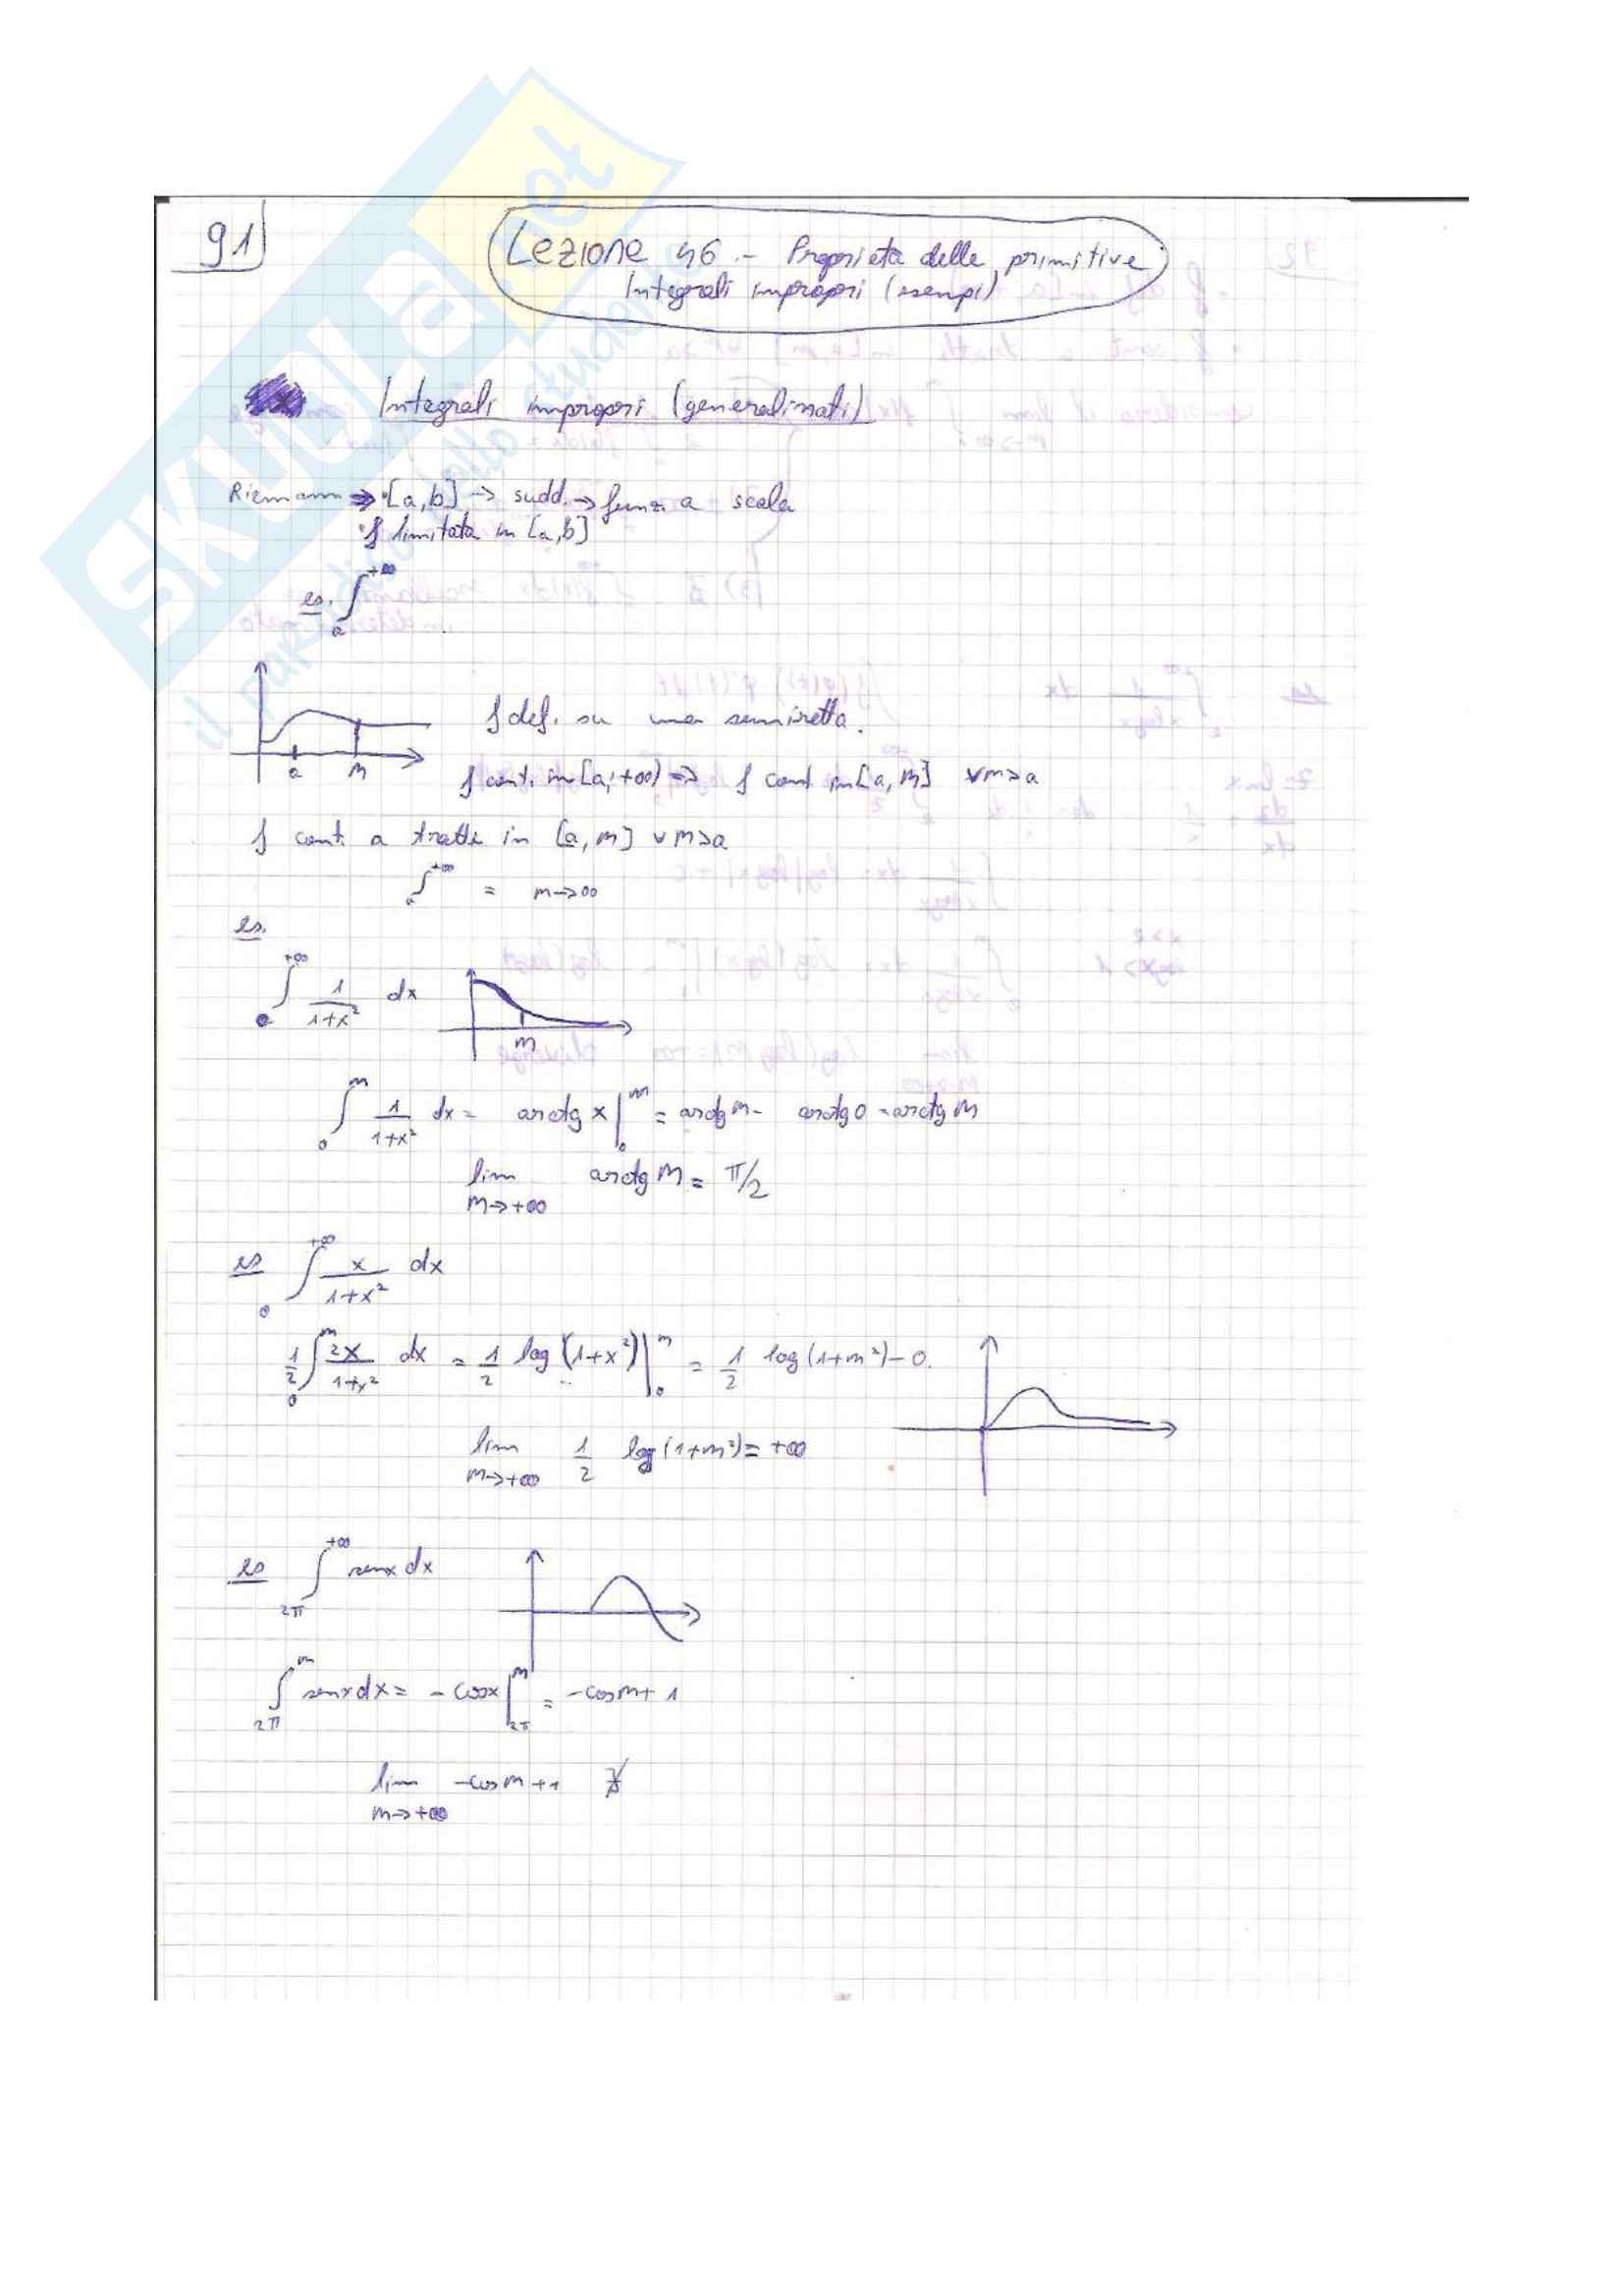 SKUOLA.net
il paradiso dello studente
91
Lezione 46 - Proprietà delle primitive
Integrali impropri (esempi)
Integrali impropri (generalizzati)
Riemann → [a,b] → sudd. → funz. a scala
f limitata in [a,b]
es. ∫_a^{+∞}
a M
f def. su una semiretta.
f cont. in [a,+∞) => f cont in [a,M] ∀M>a
f cont. a tratti in [a,M] ∀M>a
∫_a^{+∞} = M→∞
es.
∫_0^{+∞} 1/(1+x²) dx
M
∫_0^M 1/(1+x²) dx = arctg x |_0^M = arctg M - arctg 0 = arctg M
lim M→+∞ arctg M = π/2
es ∫_0^{+∞} x/(1+x²) dx
1/2 ∫_0^M 2x/(1+x²) dx = 1/2 log (1+x²) |_0^M = 1/2 log (1+M²) - 0.
lim M→+∞ 1/2 log (1+M²) = +∞
es ∫_{2π}^{+∞} senx dx
∫_{2π}^M senx dx = - cosx |_{2π}^M = -cosM + 1
lim M→+∞ -cosM + 1 ∄